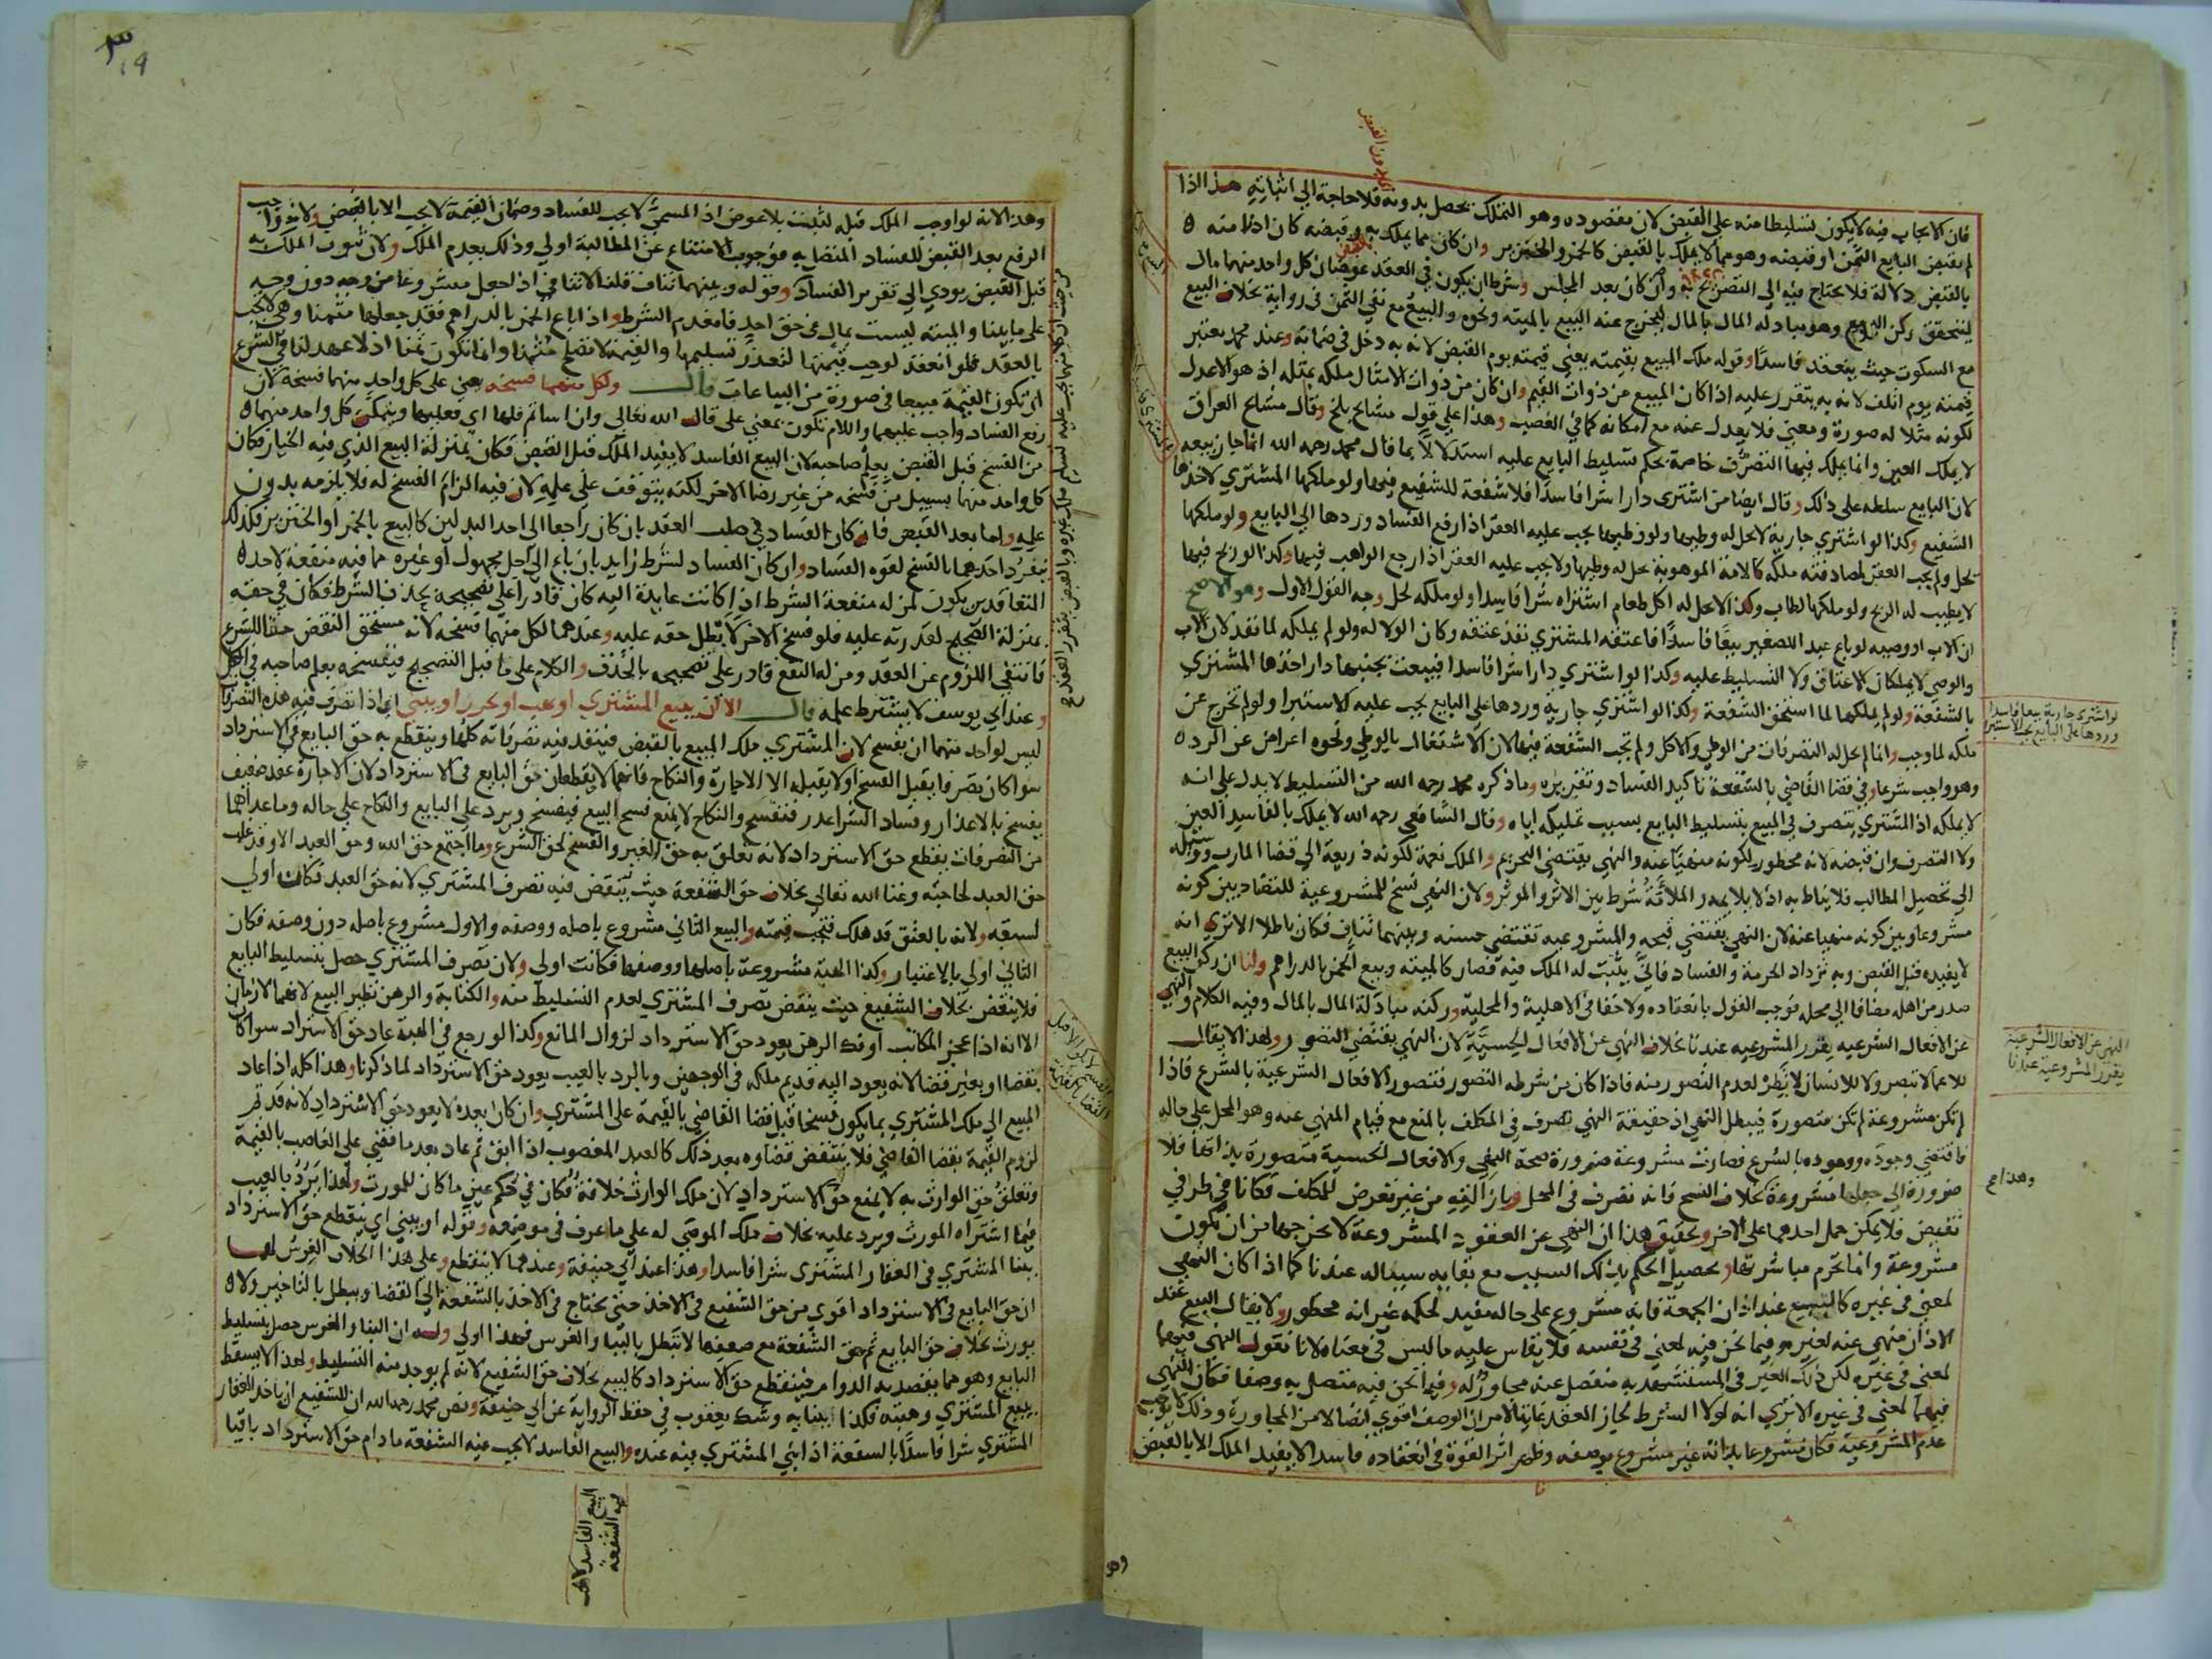 فان الايجاب فيه لا يكون تسليطا منه على القبض لان مقصوده وهو التملك يحصل بدونه فلا حاجة الي اثباته هذا اذا
لم يقبض البايع الثمن او قبضه وهو مما لا يملك بالقبض كالخمر والخنزير وان كان مما يملك به وقبضه كان اذنا منه
بالقبض دلالة فلا يحتاج فيه الى التصريح به وان كان بعد المجلس وشرط ان يكون في العقد عوضان كل واحد منهما مال
ليتحقق ركن البيع وهو مبادلة المال بالمال ليخرج عنه البيع بالميتة ونحوه والبيع مع نفي الثمن في رواية بخلاف البيع
مع السكوت حيث ينعقد فاسدا وقوله ملك المبيع بقيمته يعني قيمته يوم القبض لانه به دخل في ضمانه وعند محمد يعتبر
قيمته يوم اتلف لانه به يتقرر عليه اذا كان المبيع من ذوات القيم وان كان من ذوات الامثال ملكه بمثله اذ هو الاعدل
لكونه مثلا له صورة ومعنى فلا يعدل عنه مع امكانه كما في الغصب وهذا علي قول مشايخ بلخ وقال مشايخ العراق
لا يملك العين وانما يملك فيها التصرف خاصة بحكم تسليط البايع عليه استدلالا بما قال محمد رحمه الله انما جاز بيعه
لان البايع سلطه على ذلك وقال ايضا من اشترى دارا شرا فاسدا فلا شفعة للشفيع فيها ولو ملكها المشتري لاخذها
الشفيع وكذا لو اشتري جارية لا يحل له وطيها ولو وطيها يجب عليه العقر اذا رفع الفساد وردها الي البايع ولو ملكها
لحل ولم يجب العقر لمصادفته ملكه كالامة الموهوبة يحل له وطيها ولا يجب عليه العقر اذا رجع الواهب فيها وكذا لو ربح فيها
لا يطيب له الربح ولو ملكها لطاب وكذا لا يحل له اكل طعام اشتراه شرا فاسدا ولو ملكه لحل وجه القول الاول وهو الاصح
ان الاب او وصيه لو باع عبد الصغير بيعا فاسدا فاعتقه المشتري نفذ عتقه وكان الولا له ولو لم يملكه لما نفذ لان الاب
والوصي لا يملكان الاعتاق ولا التسليط عليه وكذا لو اشتري دارا شرا فاسدا فبيعت بجنبها دار اخذها المشتري
بالشفعة ولو لم يملكها لما استحق الشفعة وكذا لو اشتري جارية وردها على البايع يجب عليه الاستبرا ولو لم تخرج عن
ملكه لما وجب وانما لم يحل له التصرفات من الوطي والاكل ولم تجب الشفعة فيها لان الاشتغال بالوطي ونحوه اعراض عن الرد
وهو واجب شرعا وفي قضا القاضي بالشفعة تاكيد الفساد وتقريره وما ذكره محمد رحمه الله من التسليط لا يدل علي انه
لا يملكه اذ المشتري يتصرف في المبيع بتسليط البايع بسبب تمليكه اياه وقال الشافعي رحمه الله لا يملك بالفاسد العين
ولا التصرف وان قبضه لانه محظور لكونه منهيا عنه والنهي يقتضي التحريم والملك نعمة لكونه ذريعة الي قضا المارب ووسيلة
الي تحصيل المطالب فلا يناط به اذ لا بلايمه والملائمة شرط بين الاثر والموثر ولان النهي نسخ للمشروعية للتضاد بين كونه
مشروعا وبين كونه منهيا عنه لان النهي يقتضي قبحه والمشروعيه تقتضي حسنه وبينهما تناف فكان باطلا الا تري انه
لا يفيده قبل القبض وبه تزداد الحرمة والفساد فاني يثبت له الملك فيه فصار كالميتة وبيع الخمر بالدراهم ولنا ان ركن البيع
صدر من اهله مضافا الي محله فوجب القول بانعقاده ولا خفا في الاهلية والمحلية وركنه مبادلة المال بالمال وفيه الكلام والنهي
عن الافعال الشرعيه يقرر المشروعيه عندنا بخلاف النهي عن الافعال الحسية لان النهي يقتضي التصور ولهذا لا يقال
للاعمى لا تبصر ولا للانسان لا تطر لعدم التصور منه فاذا كان من شرطه التصور فتصور الافعال الشرعية بالشرع فاذا
لم تكن مشروعة لم تكن متصورة فيبطل النهي اذ حقيقة النهي تصرف في المكلف بالمنع مع قيام المنهي عنه وهو المحل على حاله
فاقتضي وجوده ووجوده بالشرع فصارت مشروعة ضرورة صحة النهي والافعال الحسية متصورة بذاتها فلا
ضرورة الى جعلها مشروعة بخلاف النسخ فانه تصرف في المحل من غير تعرض للمكلف فكانا في طرفي
نقيض فلا يمكن حمل احدهما على الاخر وتحقيق هذا ان النهي عن العقود المشروعة لا يخرجها من ان تكون
مشروعة وانما تحرم مباشرتها وتحصيل الحكم بذلك السبب مع بقايه سببا له عندنا كما اذا كان النهي
لمعنى في غيره كالبيع عند اذان الجمعة فانه مشروع على حاله مفيد لحكمه غير انه محظور ولا يقال البيع عند
الاذان منهي عنه لغيره وفيما نحن فيه لمعنى في نفسه فلا يقاس عليه ما ليس في معناه لانا نقول النهي فيهما
لمعنى في غيره لكن ذلك الغير في المستشهد به منفصل عنه مجاور له وفيما نحن فيه متصل به وصفا فكان النهي
فيهما لمعنى في غيره الا تري انه لولا الشرط لجاز العقد غاية الامر ان الوصف اقوي اتصالا من المجاورة وذلك لا يوجب
عدم المشروعية فكان مشروعا بذاته غير مشروع بوصفه وظهر اثر القوة في انعقاده فاسدا لا يفيد الملك الا بالقبض
لو اشتري جارية بيعا فاسدا
وردها على البايع يجب الاستبرا
النهي عن الافعال الشرعية
يقرر المشروعية عندنا
وهذا
وهذا لانه لو اوجب الملك قبله لثبت بلا عوض اذ المسمى لا يجب للفساد وضمان القيمة لا يجب الا بالقبض ولانه واجب
الرفع بعد القبض للفساد المتصل به فوجوب الامتناع عن المطالبة اولي وذلك بعدم الملك ولان ثبوت الملك به
قبل القبض يودي الي تقرير الفساد وقوله وبينهما تناف قلنا لا تنافي اذ الجعل مشروعا من وجه دون وجه
على ما بينا والميتة ليست بمال في حق احد فانعدم الشرط واذا باع الخمر بالدراهم فقد جعلها مثمنا وهي لا تجب
بالعقد فلو انعقد لوجب قيمتها لتعذر تسليمها والقيمة لا تصلح مثمنا وانما تكون ثمنا اذ لا عهد لنا في الشرع
ان تكون القيمة مبيعا في صورة من البياعات قال ولكل منهما فسخه يعني على كل واحد منهما فسخه لان
رفع الفساد واجب عليهما واللام تكون بمعنى على قال الله تعالي وان اساتم فلها اي فعليها ويتمكن كل واحد منهما
من الفسخ قبل القبض بعلم صاحبه لان البيع الفاسد لا يفيد الملك قبل القبض فكان بمنزلة البيع الذي فيه الخيار فكان
كل واحد منهما بسبيل من فسخه من غير رضا الاخر لكنه يتوقف على علمه لان فيه الزام الفسخ له فلا يلزمه بدون
علمه واما بعد القبض فان كان الفساد في صلب العقد بان كان راجعا الى احد البدلين كالبيع بالخمر او الخنزير فكذلك
ينفرد احدهما بالفسخ لقوة الفساد وان كان الفساد لشرط زايد بان باع الى اجل مجهول او غيره مما فيه منفعة لاحد
المتعاقدين يكون لمن له منفعة الشرط اذا كانت عايدة اليه كان قادرا على تصحيحه بحذف الشرط فكان في حقه
بمنزلة الصحيح لقدرته عليه فلو فسخ الاخر لابطل حقه عليه وعندهما لكل منهما فسخه لانه مستحق النقض حقا للشرع
فانتفي اللزوم عن العقد ومن له النفع قادر على تصحيحه بالحذف والكلام على ما قبل التصحيح فيفسخه بعلم صاحبه في الكل
وعند ابي يوسف لا يشترط علمه قال الا ان يبيع المشتري او يهب او يحرر او يبني اي اذا تصرف فيه هذه التصرفات
ليس لواحد منهما ان يفسخ لان المشتري ملك المبيع بالقبض فينفذ فيه تصرفاته كلها وينقطع به حق البايع في الاسترداد
سوا كان تصرفا يقبل الفسخ او لا يقبله الا الاجارة والنكاح فانهما لا يقطعان حق البايع في الاسترداد لان الاجارة عقد ضعيف
يفسخ بالاعذار وفساد الشرا عذر فتنفسخ والنكاح لا يمنع فسخ البيع فيفسخ ويرد علي البايع والنكاح علي حاله وما عداهما
من التصرفات يقطع حق الاسترداد لانه تعلق به حق الغير والفسخ لحق الشرع وما اجتمع حق الله وحق العبد الا وقد غلب
حق العبد لحاجته وغنا الله تعالي بخلاف حق الشفعة حيث ينتقض فيه تصرف المشتري لانه حق العبد فكان اولي
لسبقه ولانه بالعتق قد هلك فتجب قيمته والبيع الثاني مشروع باصله ووصفه والاول مشروع باصله دون وصفه فكان
الثاني اولي بالاعتبار وكذا الهبة مشروعة باصلها ووصفها فكانت اولي ولان تصرف المشتري حصل بتسليط البايع
فلا ينقض بخلاف الشفيع حيث ينقض تصرف المشتري لعدم التسليط منه والكتابة والرهن نظير البيع لانهما لازمان
الا انه اذا عجز المكاتب او فك الرهن يعود حق الاسترداد لزوال المانع وكذا لو رجع في الهبة عاد حق الاسترداد سوا كان
بقضا او بغير قضا لانه يعود اليه قديم ملكه في الوجهين وبالرد بالعيب يعود حق الاسترداد لما ذكرنا وهذا كله اذا عاد
المبيع الى ملك المشتري بما يكون فسخا قبل قضا القاضي بالقيمة على المشتري وان كان بعده لا يعود حق الاسترداد لانه قد تم
لزوم القيمة بقضا القاضي فلا ينتقض قضاوه بعد ذلك كالعبد المغصوب اذا ابق ثم عاد بعد ما قضي علي الغاصب بالقيمة
وتعلق حق الوارث به لا يمنع حق الاسترداد لان ملك الوارث خلافة فكان في حكم عين ما كان للمورث ولهذا يرد بالعيب
فيما اشتراه المورث ويرد عليه بخلاف ملك الموصى له علي ما عرف في موضعه وقوله او يبني اي ينقطع حق الاسترداد
ببنا المشتري في العقار المشترى شرا فاسدا وهذا عند ابي حنيفة وعندهما لا ينقطع وعلى هذا الخلاف الغرس لهما
ان حق البايع في الاسترداد اقوي من حق الشفيع في الاخذ حتى يحتاج في الاخذ بالشفعة الي القضا ويبطل بالتاخير ولا
يورث بخلاف حق البايع ثم حق الشفعة مع ضعفها لا تبطل بالبنا والغرس فهذا اولي وله ان البنا والغرس حصل بتسليط
البايع وهو مما يقصد به الدوام فينقطع حق الاسترداد كالبيع بخلاف حق الشفيع لانه لم يوجد منه التسليط ولهذا لا يسقط
ببيع المشتري وهبته فكذا ببنايه وشك يعقوب في حفظ الرواية عن ابي حنيفة ونص محمد رحمه الله ان للشفيع ان ياخذ العقار
المشتري شرا فاسدا بالشفعة اذا بني المشتري فيه عنده والبيع الفاسد لا يجب فيه الشفعة ما دام حق الاسترداد باقيا
البيع الفاسد لا يجب
فيه الشفعة